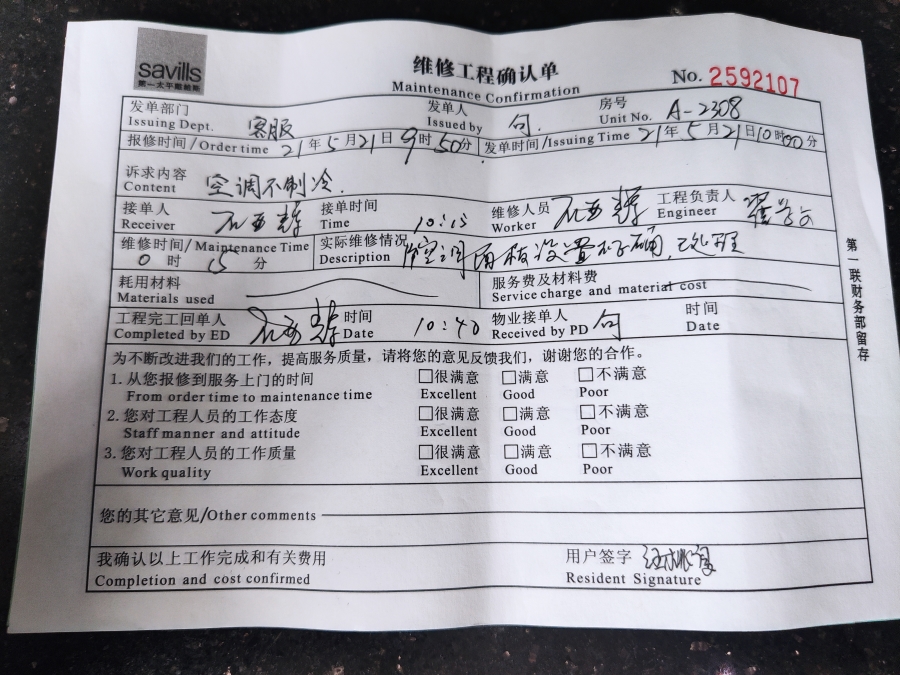 savills
第一太平戴维斯
维修工程确认单
Maintenance Confirmation
No. 2592107
发单部门 Issuing Dept. 客服 发单人 Issued by 句. 房号 Unit No. A-2308
报修时间/Order time 21年5月21日9时50分 发单时间/Issuing Time 21年5月21日10时00分
诉求内容 Content 空调不制冷.
接单人 Receiver 接单时间 Time 10:15 维修人员 Worker 工程负责人 Engineer
维修时间/Maintenance Time 0时15分 实际维修情况 Description 空调面板设置不正确,已处理
耗用材料 Materials used 服务费及材料费 Service charge and material cost
工程完工回单人 Completed by ED 时间 Date 10:40 物业接单人 Received by PD 句 时间 Date
为不断改进我们的工作，提高服务质量，请将您的意见反馈我们，谢谢您的合作。
1.从您报修到服务上门的时间 □很满意 □满意 □不满意
From order time to maintenance time Excellent Good Poor
2.您对工程人员的工作态度 □很满意 □满意 □不满意
Staff manner and attitude Excellent Good Poor
3.您对工程人员的工作质量 □很满意 □满意 □不满意
Work quality Excellent Good Poor
您的其它意见/Other comments
我确认以上工作完成和有关费用 用户签字
Completion and cost confirmed Resident Signature
第一联财务部留存